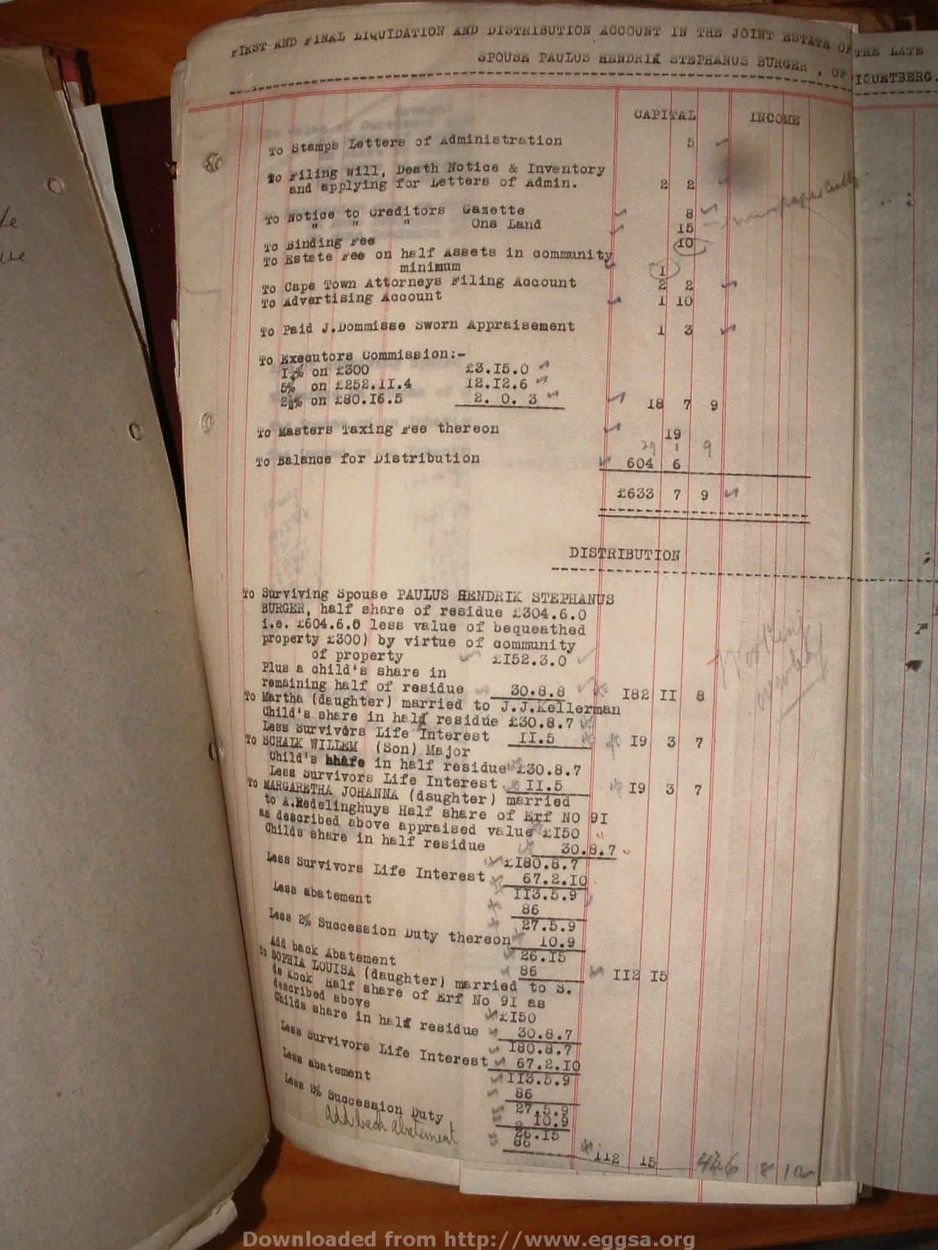 te.
ue
FIRST AND FINAL LIQUIDATION AND DISTRIBUTION ACCOUNT IN THE JOINT ESTATE OF THE LATE
SPOUSE PAULUS HENDRIK STEPHANUS BURGER , OF IQUETBERG.
CAPITAL INCOME
To Stamps Letters of Administration 5
To Filing Will, Death Notice & Inventory
and applying for Letters of Admin. 2 2
To Notice to Creditors Gazette 8
" " " Ons Land 15
To Binding Fee 10
To Estate Fee on half Assets in community
minimum 1
To Cape Town Attorneys Filing Account 2 2
To Advertising Account 1 10
To Paid J.Dommisse Sworn Appraisement 1 3
To Executors Commission:-
on £300 £3.I5.0
5% on £252.II.4 12.I2.6
2½% on £80.I6.5 2. 0. 3 18 7 9
To Masters Taxing Fee thereon 19
29 1 9
To Balance for Distribution 604 6
£633 7 9
DISTRIBUTION
To Surviving Spouse PAULUS HENDRIK STEPHANUS
BURGER, half share of residue £304.6.0
i.e. £604.6.0 less value of bequeathed
property £300) by virtue of community
of property £I52.3.0
Plus a child's share in
remaining half of residue 30.8.8 I82 II 8
To Martha (daughter) married to J.J.Kellerman
Child's share in half residue £30.8.7
Less Survivors Life Interest II.5 I9 3 7
To SCHALK WILLEM (Son) Major
Child's share in half residue £30.8.7
Less Survivors Life Interest II.5 I9 3 7
To MARGARETHA JOHANNA (daughter) married
to A.Redelinghuys Half share of Erf NO 9I
as described above appraised value £I50
Childs share in half residue 30.8.7
£I80.8.7
Less Survivors Life Interest 67.2.IO
II3.5.9
Less abatement 86
27.5.9
Less 2% Succession Duty thereon 10.9
26.I5
Add back Abatement 86 II2 I5
To SOPHIA LOUISA (daughter) married to S.
de Kock Half share of Erf No 9I as
described above £I50
Childs share in half residue 30.8.7
I80.8.7
Less Survivors Life Interest 67.2.IO
II3.5.9
Less abatement 86
27.5.9
Less Succession Duty 10.9
26.I5
add back abatement 86
112 15 446 8 10
Downloaded from http://www.eggsa.org